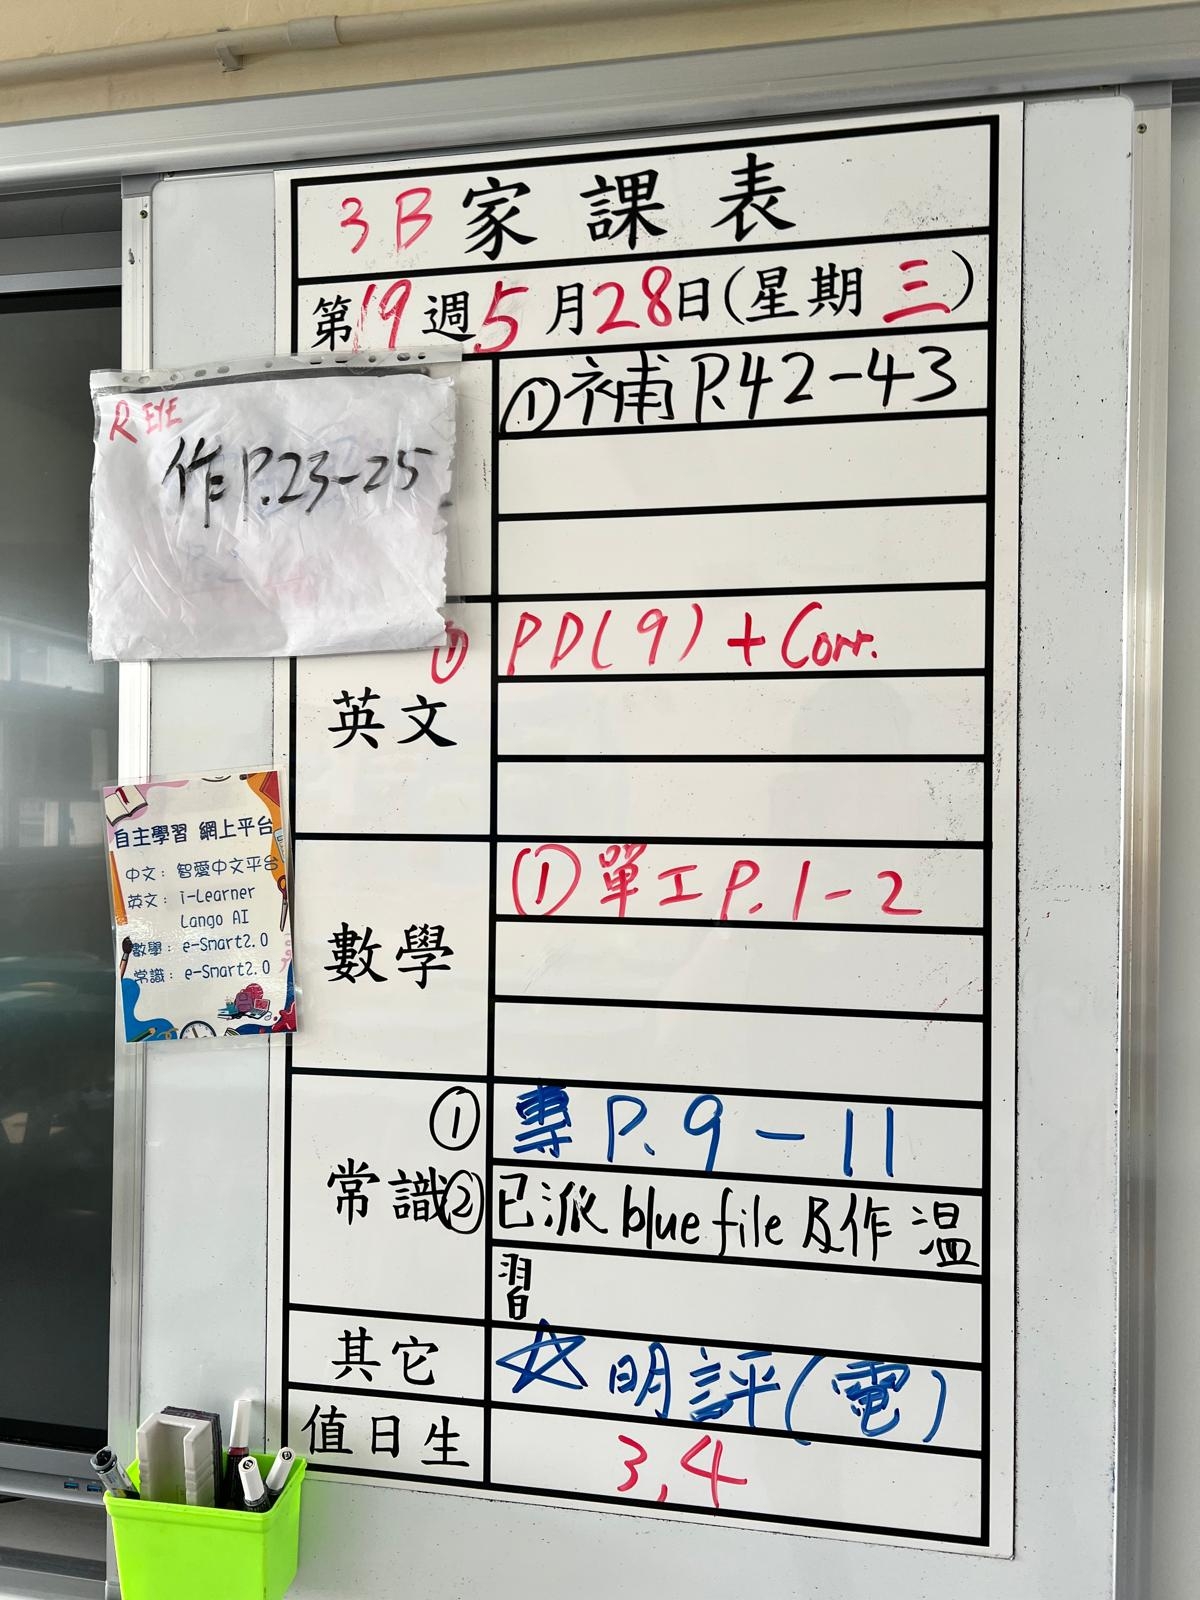 3B 家課表
第19週5月28日(星期三)
R EYE
作P.23-25
①補P.42-43
英文
① PD(9)+Corr.
數學
①單工P.1-2
常識
① 專P.9-11
② 已派blue file及作溫
習
其它
☆明評(電)
值日生
3,4
自主學習 網上平台
中文：智愛中文平台
英文：i-Learner
Lango AI
數學：e-Smart2.0
常識：e-Smart2.0